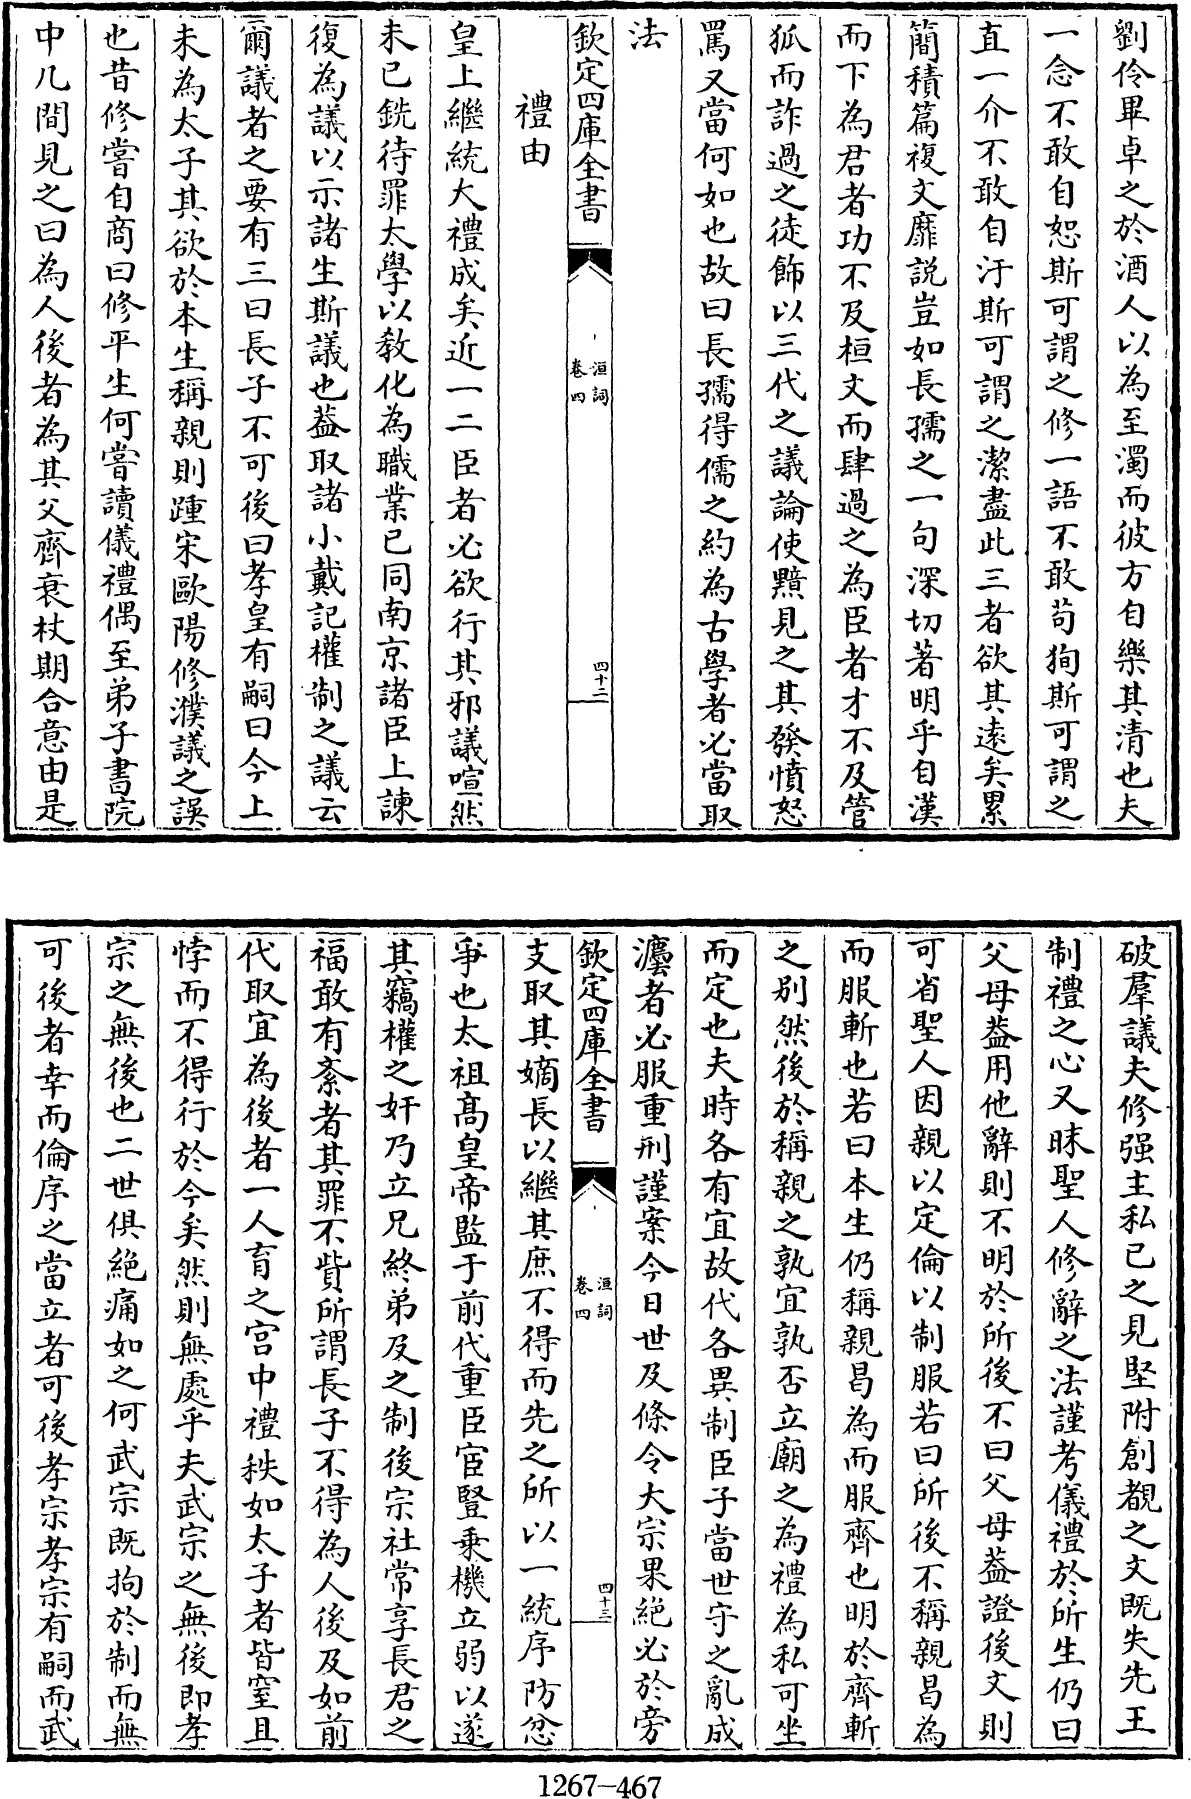 劉伶畢卓之於酒人以為至濁而彼方自樂其清也夫
一念不敢自恕斯可謂之修一語不敢苟狥斯可謂之
直一介不敢自汙斯可謂之潔盡此三者欲其遠矣累
簡積篇複文靡説豈如長孺之一句深切著明乎自漢
而下為君者功不及桓文而肆過之為臣者才不及管
狐而詐過之徒飾以三代之議論使黯見之其發憤怒
罵又當何如也故曰長孺得儒之約為古學者必當取
法
欽定四庫全書
洹詞
卷四
四十二
禮由
皇上繼統大禮成矣近一二臣者必欲行其邪議喧然
未已銑待罪太學以教化為職業已同南京諸臣上諫
復為議以示諸生斯議也葢取諸小戴記權制之議云
爾議者之要有三曰長子不可後曰孝皇有嗣曰今上
未為太子其欲於本生稱親則踵宋歐陽修濮議之誤
也昔修嘗自商曰修平生何嘗讀儀禮偶至弟子書院
中几間見之曰為人後者為其父齊衰杖期合意由是
破羣議夫修强主私已之見堅附創覩之文既失先王
制禮之心又昧聖人修辭之法謹考儀禮於所生仍曰
父母葢用他辭則不明於所後不曰父母葢證後文則
可省聖人因親以定倫以制服若曰所後不稱親曷為
而服斬也若曰本生仍稱親曷為而服齊也明於齊斬
之别然後於稱親之孰宜孰否立廟之為禮為私可坐
而定也夫時各有宜故代各異制臣子當世守之亂成
灋者必服重刑謹案今日世及條令大宗果絶必於旁
欽定四庫全書
洹詞
卷四
四十三
支取其嫡長以繼其庶不得而先之所以一統序防忿
爭也太祖髙皇帝監于前代重臣宦豎乗機立弱以遂
其竊權之奸乃立兄終弟及之制後宗社常享長君之
福敢有紊者其罪不貲所謂長子不得為人後及如前
代取宜為後者一人育之宫中禮秩如太子者皆窒且
悖而不得行於今矣然則無處乎夫武宗之無後即孝
宗之無後也二世俱絶痛如之何武宗既拘於制而無
可後者幸而倫序之當立者可後孝宗孝宗有嗣而武
1267—467